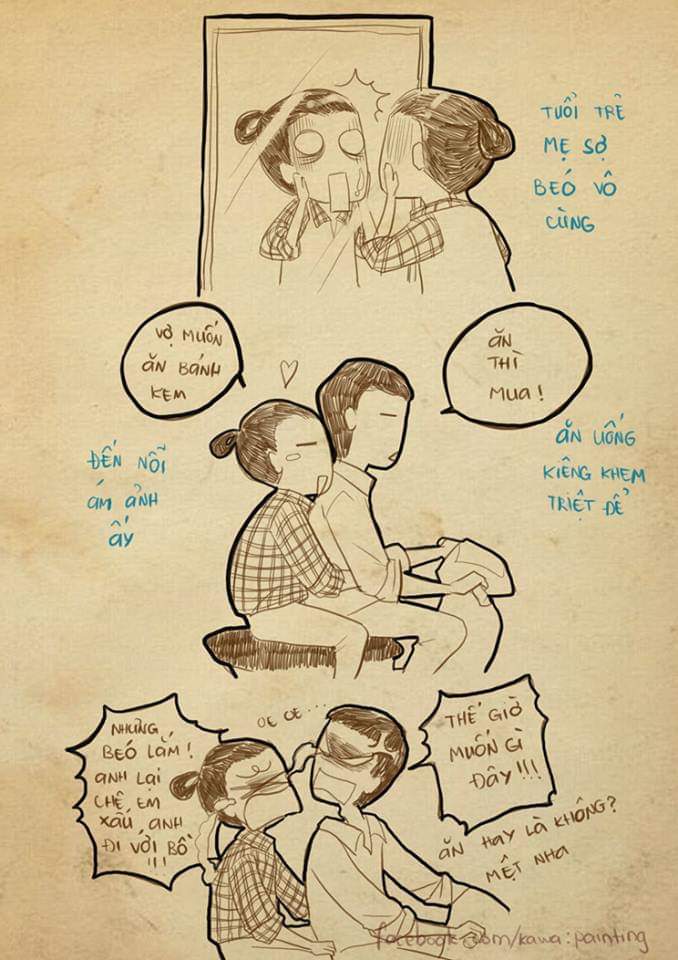 TUỔI TRẺ
MẸ SỢ
BEÓ VÔ
CÙNG
VỢ MUỐN
ĂN BÁNH
KEM
ĂN
THÌ
MUA!
ĐẾN NỖI
ÁM ẢNH
ẤY
ĂN UỐNG
KIÊNG KHEM
TRIỆT ĐỂ
NHƯNG
BEÓ LẮM!
ANH LẠI
CHÊ EM
XẤU, ANH
ĐI VỚI BỒ
!!!
OE OE...
THẾ GIỜ
MUỐN GÌ
ĐÂY!!!
ĂN HAY LÀ KHÔNG?
MỆT NHA
facebook.com/kawa:painting